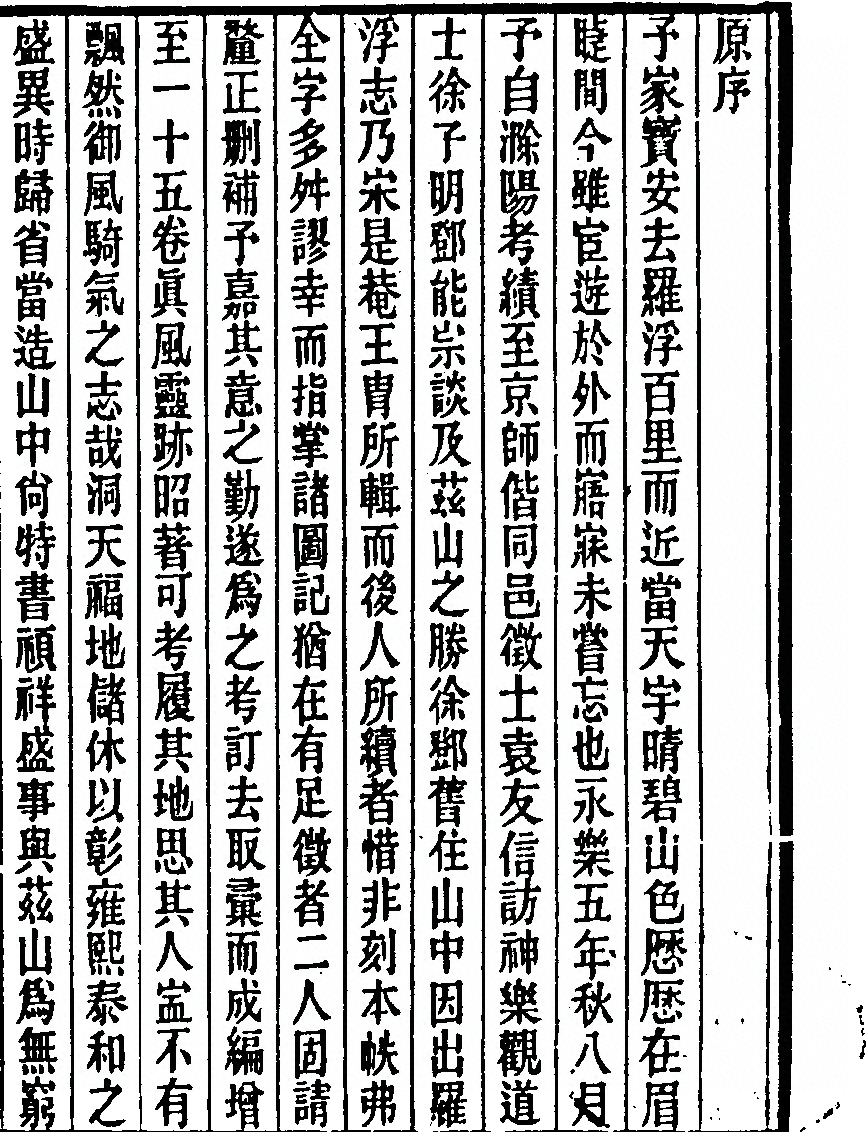 原序
予家寶安去羅浮百里而近當天宇晴碧山色歷歷在眉
睫間今雖宦遊於外而寤寐未嘗忘也永樂五年秋八月
予自滁陽考績至京師偕同邑徵士袁友信訪神樂觀道
士徐子明鄧能崇談及茲山之勝徐鄧舊住山中因出羅
浮志乃宋是菴王胄所輯而後人所續者惜非刻本帙弗
全字多舛謬幸而指掌諸圖記猶在有足徵者二人固請
釐正刪補予嘉其意之勤遂爲之考訂去取彙而成編增
至一十五卷眞風靈跡昭著可考履其地思其人豈不有
飄然御風騎氣之志哉洞天福地儲休以彰雍熙泰和之
盛異時歸省當造山中尙特書禎祥盛事與茲山爲無窮